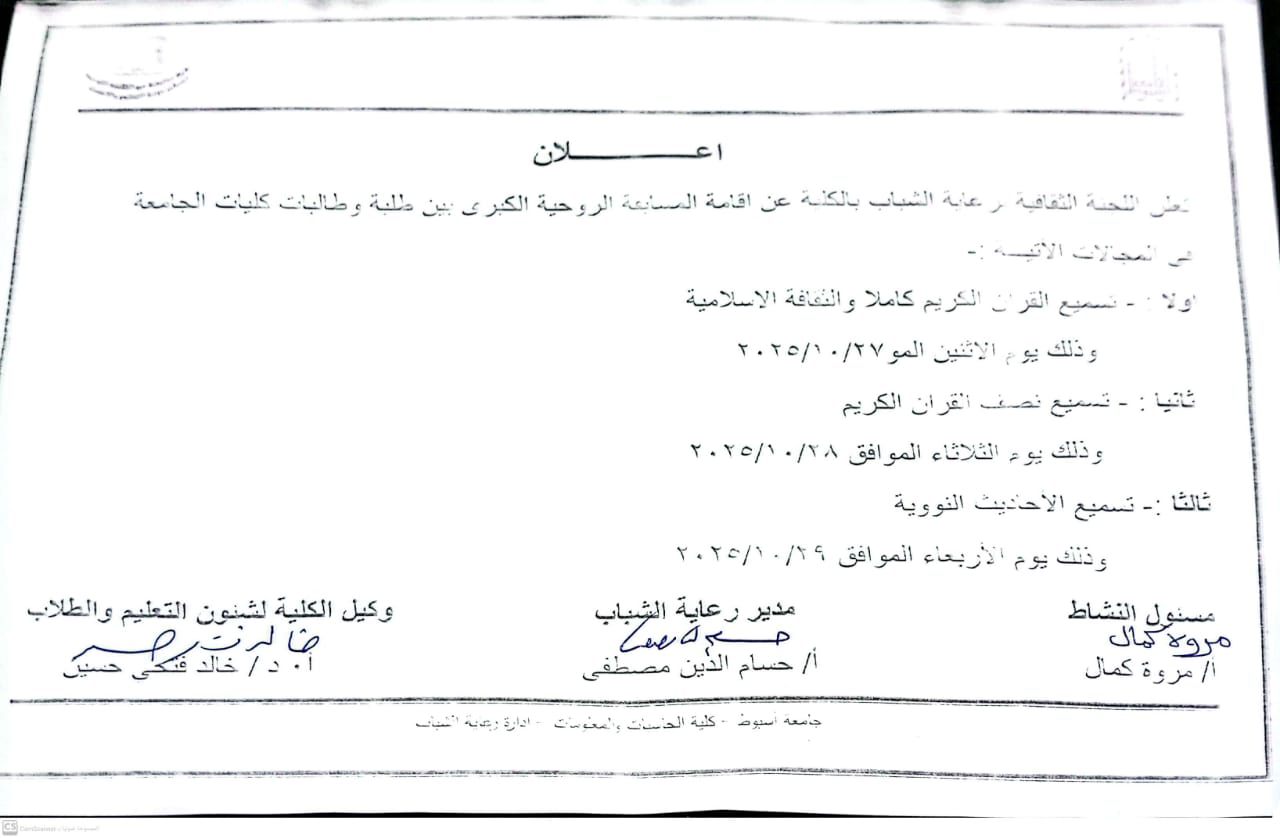 اعـــــــــــلان
تعلن اللجنة الثقافية برعاية الشباب بالكلية عن اقامة المسابقة الروحية الكبرى بين طلبة وطالبات كليات الجامعة
فى المجالات الأتيـــه :-
اولا : - تسميع القران الكريم كاملا والثقافة الاسلامية
وذلك يوم الاثنين المو٢٠٢٥/١٠/٢٧
ثانيا : - تسميع نصف القران الكريم
وذلك يوم الثلاثاء الموافق ٢٠٢٥/١٠/٢٨
ثالثا :- تسميع الأحاديث النووية
وذلك يوم الأربعاء الموافق ٢٠٢٥/١٠/٢٩
مسئول النشاط مدير رعاية الشباب وكيل الكلية لشئون التعليم والطلاب
مروة كمال
أ/ مروة كمال أ/ حسام الدين مصطفى أ. د / خالد فتحى حسين
جامعة أسيوط - كلية الحاسبات والمعلومات - ادارة رعاية الشباب
CS CamScanner